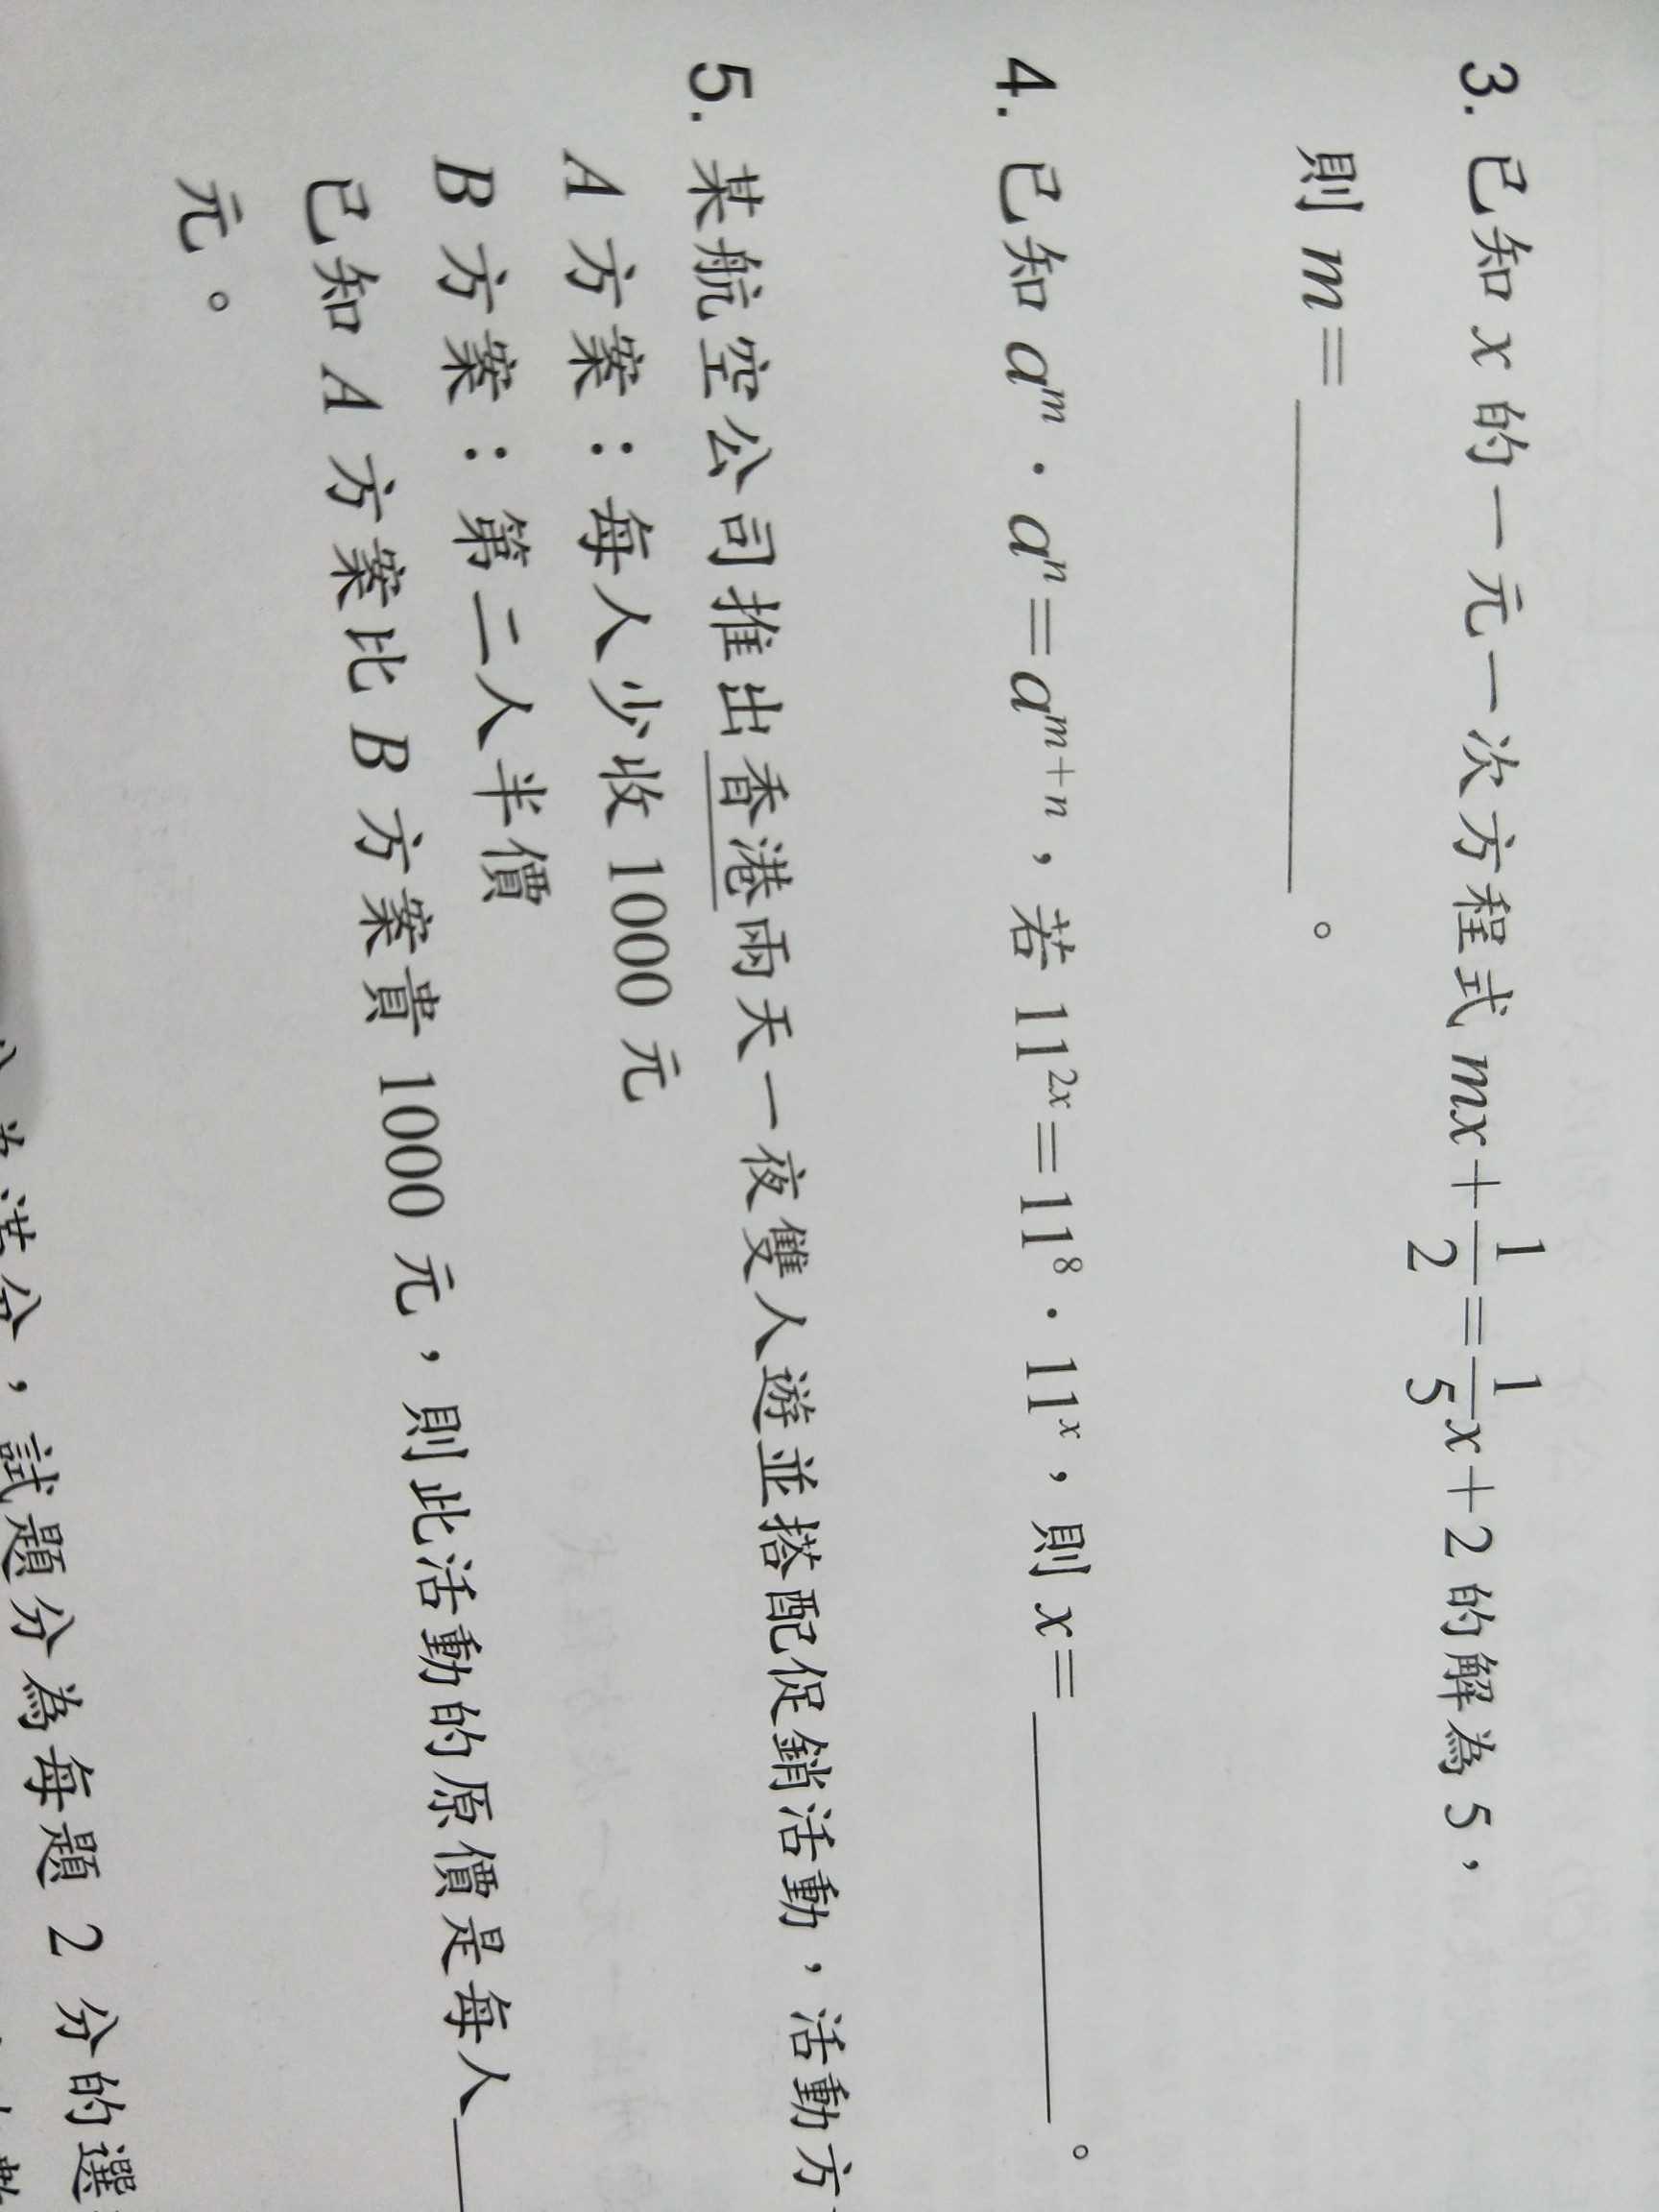 3. 已知 x 的一元一次方程式 mx+1/2=1/5x+2 的解為 5，
則 m=__________。
4. 已知 aᵐ．aⁿ=aᵐ⁺ⁿ，若 11²ˣ=11⁸．11ˣ，則 x=__________。
5. 某航空公司推出香港兩天一夜雙人遊並搭配促銷活動，活動方
A 方案：每人少收 1000 元
B 方案：第二人半價
已知 A 方案比 B 方案貴 1000 元，則此活動的原價是每人____
元。
滿分，試題分為每題 2 分的選